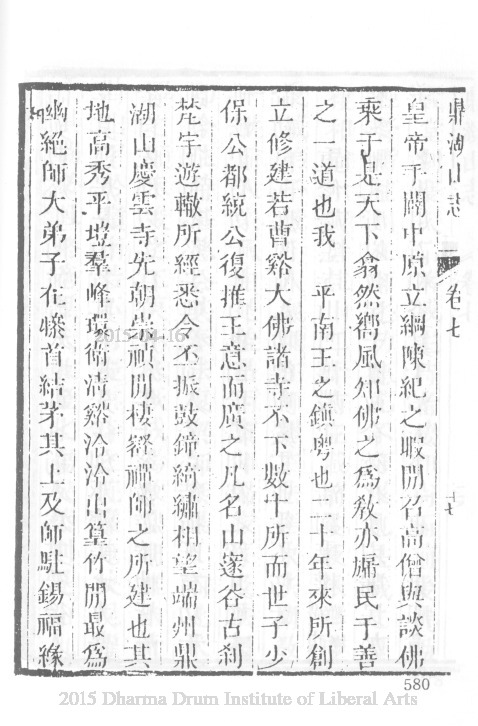 鼎湖山志 卷七 十七
皇帝手闢中原立綱陳紀之暇開召高僧與談佛
乘于是天下翕然嚮風知佛之爲敎亦牖民于善
之一道也我 平南王之鎮粵也二十年來所創
立修建若曹谿大佛諸寺不下數十所而世子少
保公都統公復推王意而廣之凡名山邃谷古刹
梵宇遊轍所經悉令丕振鼓鐘綺繡相望端州鼎
湖山慶雲寺先朝崇禎間棲壑禪師之所建也其
地高秀平塏羣峰環衛清谿泠泠出篁竹間最爲
幽絕師大弟子在犙首結茅其上及師駐錫福緣
580
2015-04-16
2015 Dharma Drum Institute of Liberal Arts